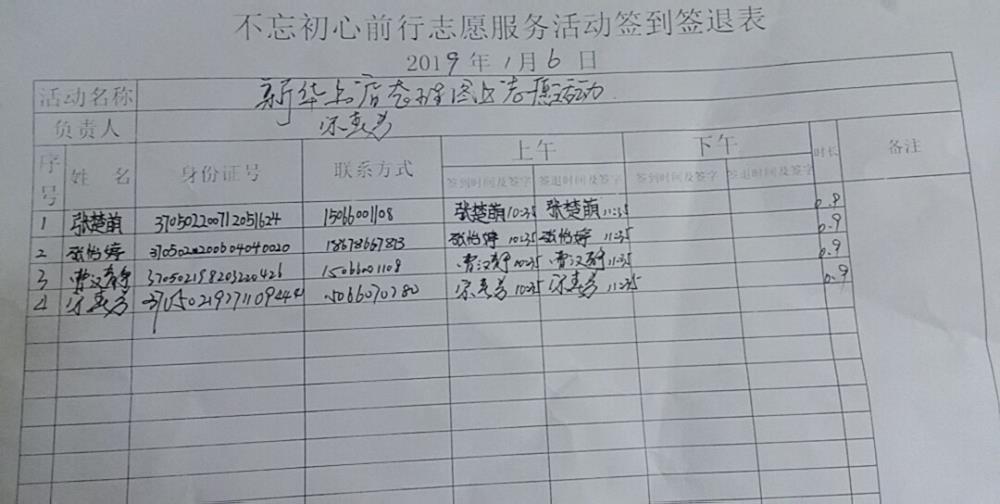 不忘初心前行志愿服务活动签到签退表
2019年1月6日
活动名称 新华书店整理图书志愿活动
负责人
序号 姓名 身份证号 联系方式 上午 下午 时长 备注
签到时间及签字 签退时间及签字 签到时间及签字 签退时间及签字
1 张楚萌 370502200712051624 15066001108 张楚萌 10:35 张楚萌 11:35 0.9
2 张怡婷 370502200604040020 18678667813 张怡婷 10:35 张怡婷 11:35 0.9
3 370502198203220426 15066001108 10:35 11:35 0.9
4 10:35 11:35 0.9